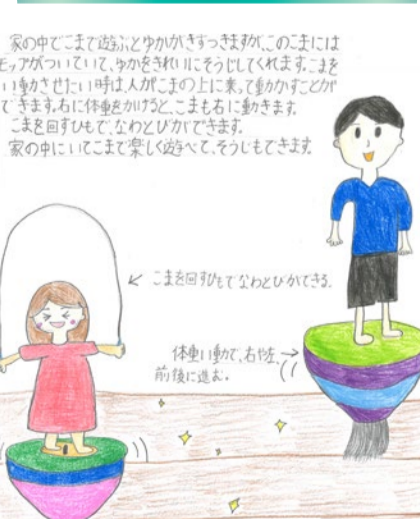 家の中でこまで遊ぶとゆかがきずつきますが、このこまには
モップがついていて、ゆかをきれいにそうじしてくれます。こまを
い動させたい時は、人がこまの上に乗って動かすことが
できます。右に体重をかけると、こまも右に動きます。
こまを回すひもで、なわとびができます。
家の中にいてこまで楽しく遊べて、そうじもできます。
こまを回すひもでなわとびができる。
体重い動で、右や左、
前後に進む。